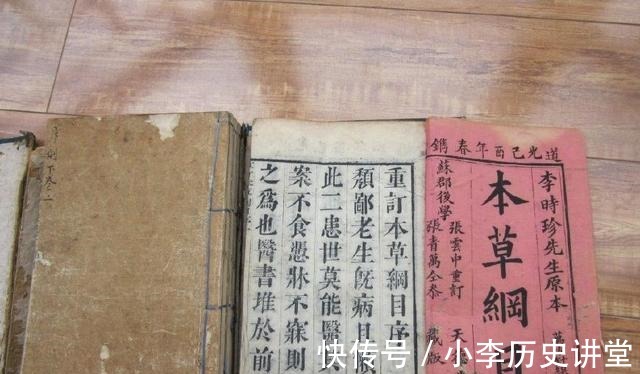 道光己酉年春鐫
李時珍先生原本
本草綱
張雲中重訂
蘇郡後學
張青萬仝參
藏版
重訂本草綱目序
頹鄙老生旣病目
此二患世莫能醫
案不食牀不寐則
之爲也醫書堆於前
快传号 / 小李历史讲堂